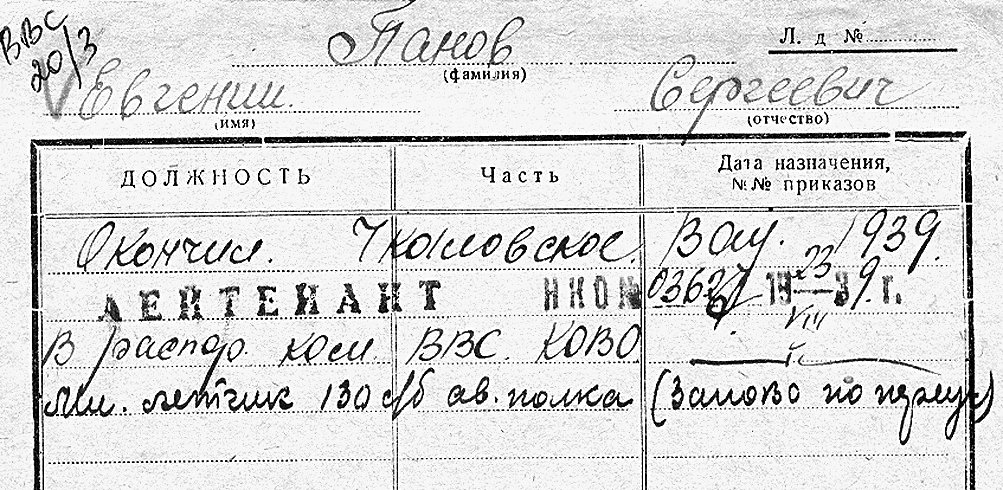 ВВС
20/3
Панов
Л. д №
(фамилия)
Евгений
Сергеевич
(имя)
(отчество)
ДОЛЖНОСТЬ Часть Дата назначения, №№ приказов
Окончил Чкаловское Вау. 1939.
ЛЕЙТЕНАНТ НКО № 0362 19 23/VIII 39 г.
В распор. ком ВВС. КОВО
Мл. летчик 130 с/б ав. полка (Заново по переуч)